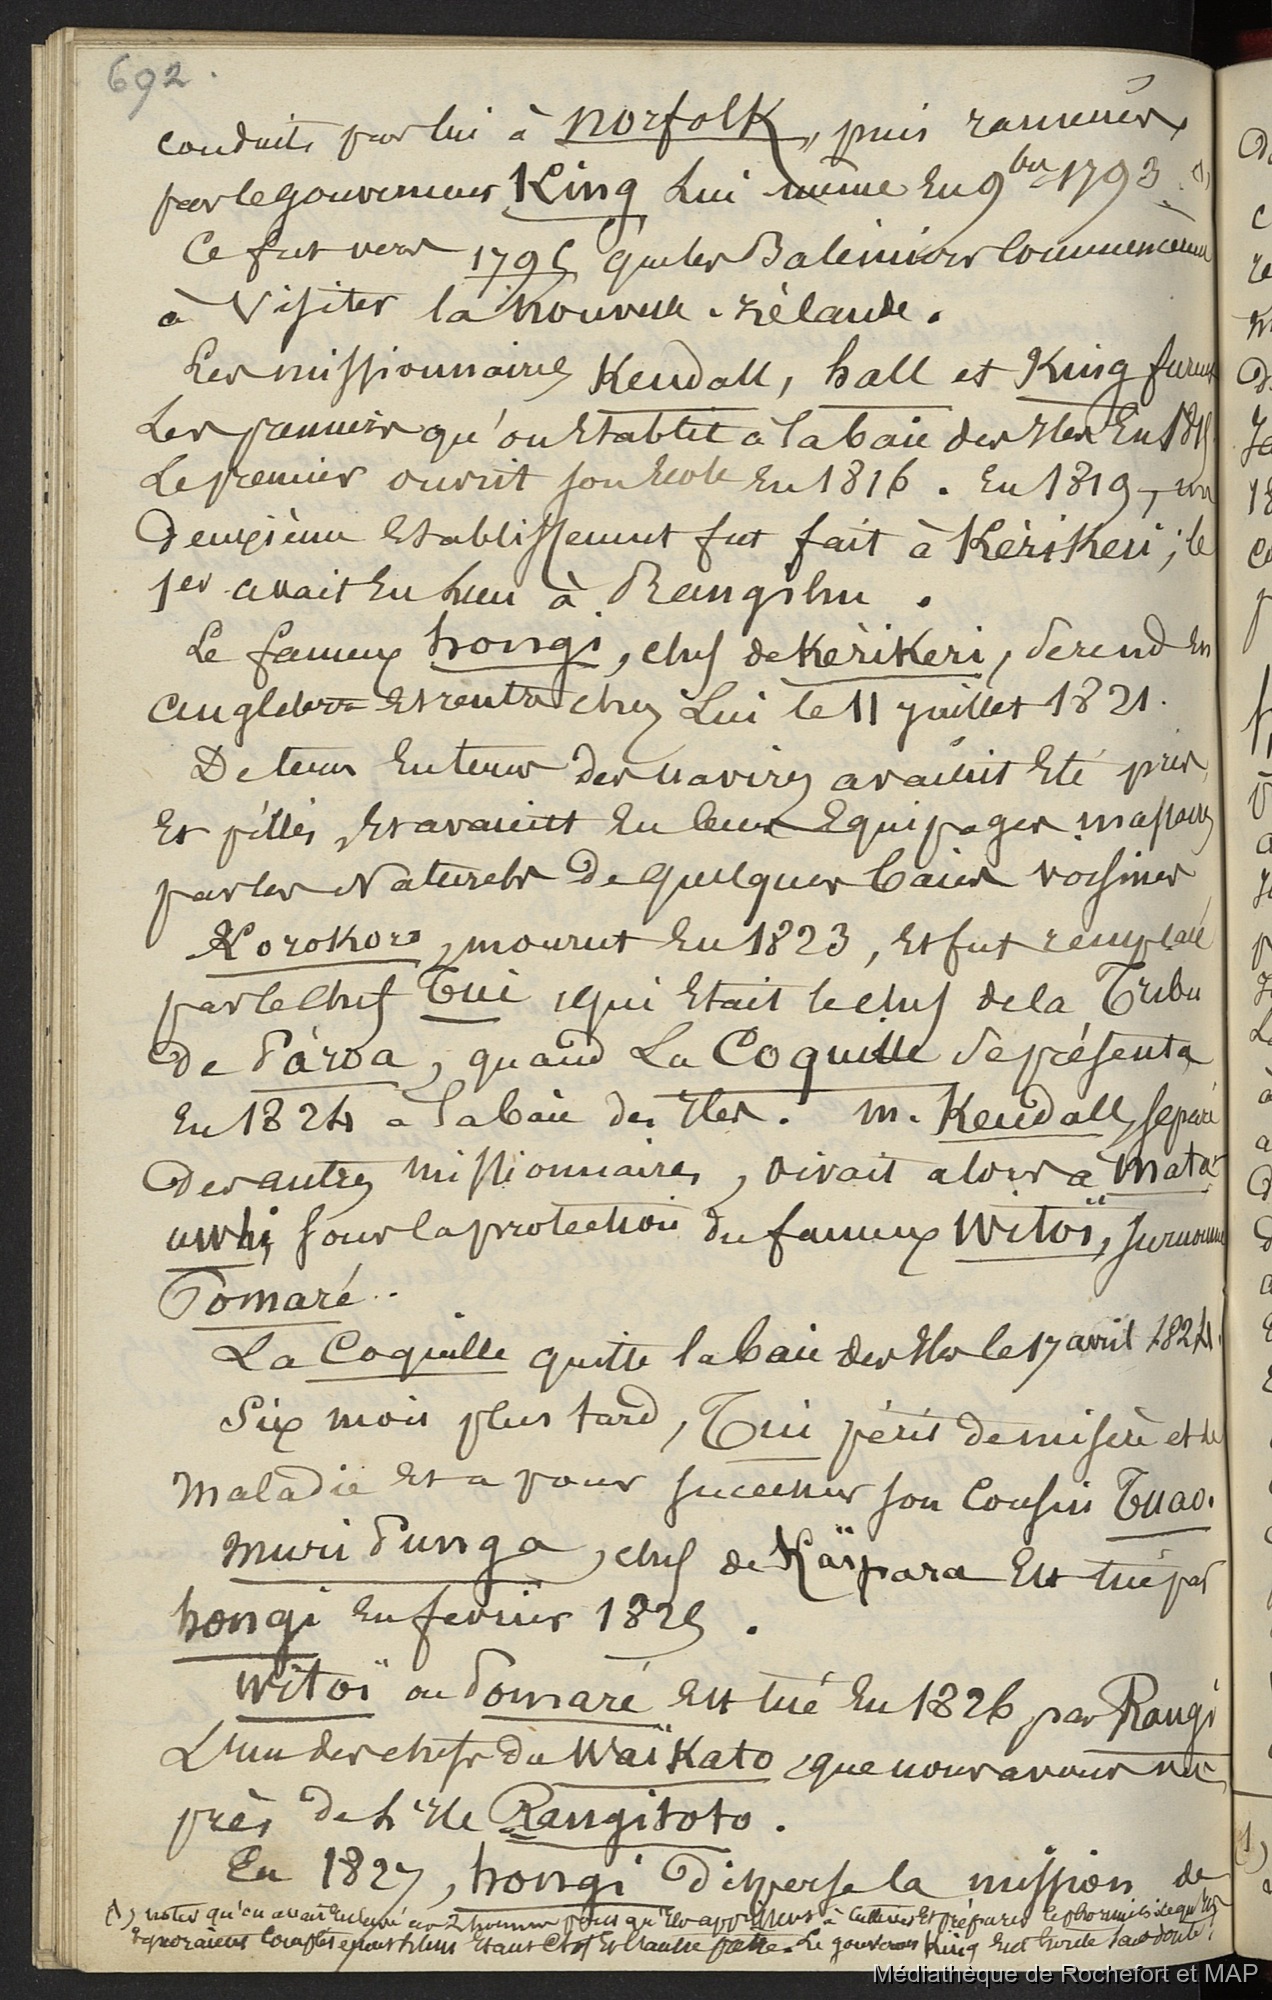 692.
conduits par lui à Norfolk, puis ramenés
par le gouverneur King lui même en 9bre 1793. (1)
Ce fut vers 1795 que les Baleiniers commencèrent
à visiter la nouvelle-zélande.
Les missionnaires Kendall, hall et King furent
Les premiers qu'on Etablit à la baie des Iles En 1815
Le premier ouvrit son Ecole En 1816. En 1819, un
deuxième Etablissement fut fait à Kérikéri; le
1er avait Eu lieu à Rangihu.
Le fameux hongi, chef de Kérikéri, se rend En
angleterre Et rentre chez Lui le 11 juillet 1821.
De tems En tems des navires avaient Eté pris
Et pillés, Et avaient Eu leurs Equipages massacrés
par les Naturels De quelques baies voisines
Korokoro, mourut En 1823, Et fut remplacé
par le chef Tui, qui Etait le chef de la Tribu
de Paroa, quand La Coquille se présenta
En 1824 a la baie des Iles. M. Kendall, séparé
Des autres missionnaires, vivait alors à Mata-
uwhi, sous la protection du fameux Witoï, surnommé
Pomaré.
La Coquille quitte la baie des Iles le 17 avril 1824.
Six mois plus tard, Tui périt de misère et de
Maladie Et a pour successeur son Cousin Tuao.
Muri Punga, chef de Kaïpara Est tué par
hongi En fevrier 1825.
Witoï ou Pomaré Est tué En 1826 par Rangi
L'un des chefs du Waïkato, que nous avons vu
près de L'Ile Rangitoto.
En 1827, hongi disperse la mission de
(1) noter qu'on avait Enlevé ces 2 hommes pour qu'Ils apprissent à cultiver Et préparer le phormium ce qu'Ils
Ignoraient Complètement L'un Etant chef Et L'autre prêtre. Le gouverneur King